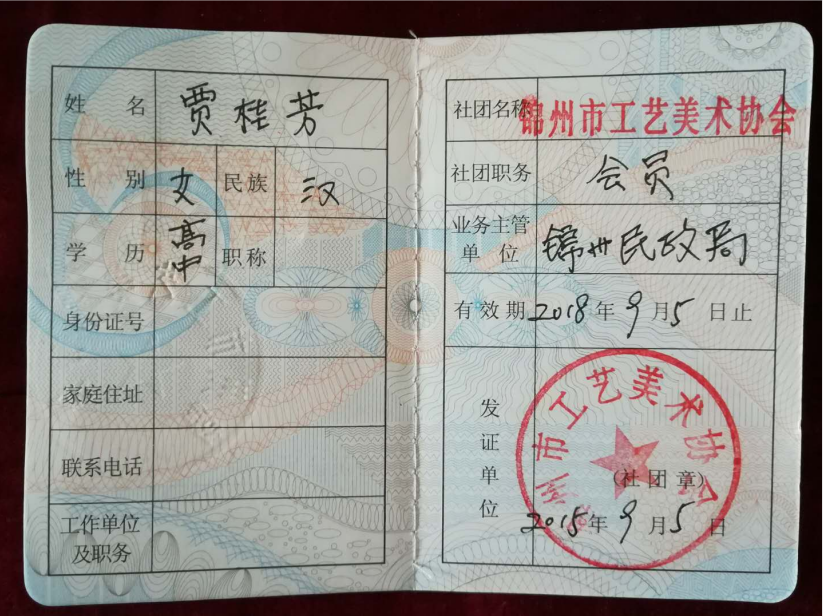 姓 名 贾桂芳
性 别 女 民族 汉
学 历 高中 职称
身份证号
家庭住址
联系电话
工作单位
及职务
社团名称 锦州市工艺美术协会
社团职务 会员
业务主管
单 位 锦州民政局
有效期 2018年9月5日止
发证单位
州市工艺美术协会
(社团章)
2015年9月5日